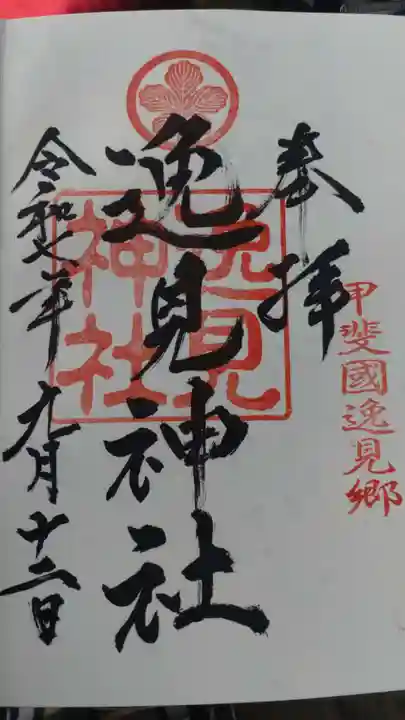 甲斐國逸見郷
奉拝
逸見神社
逸見
神社
令和七年九月十二日